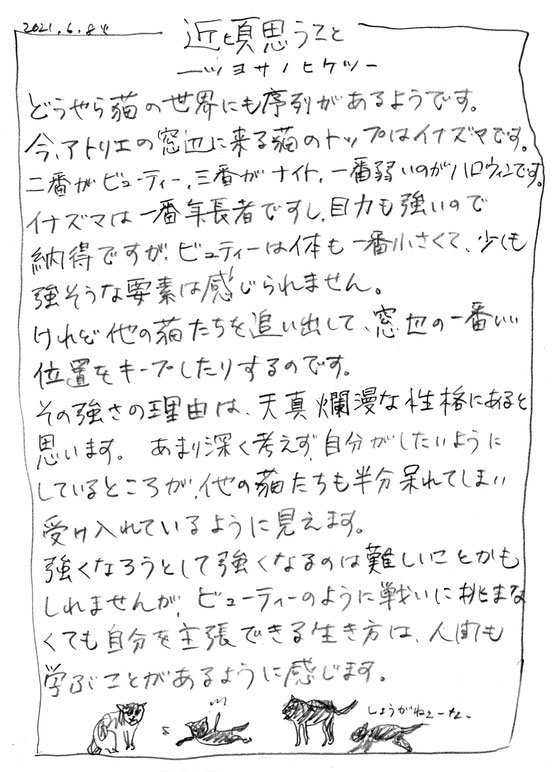 2021.6.8火
近頃思うこと
ーツヨサノヒケツー
どうやら猫の世界にも序列があるようです。
今、アトリエの窓辺に来る猫のトップはイナズマです。
二番がビューティー、三番がナイト、一番弱いのがハロウィンです。
イナズマは一番年長者ですし、目力も強いので
納得ですが、ビューティーは体も一番小さくて、少しも
強そうな要素は感じられません。
けれど他の猫たちを追い出して、窓辺の一番いい
位置をキープしたりするのです。
その強さの理由は、天真爛漫な性格にあると
思います。 あまり深く考えず、自分がしたいように
しているところが、他の猫たちも半分呆れてしまい
受け入れているように見えます。
強くなろうとして強くなるのは難しいことかも
しれませんが、ビューティーのように戦いに挑まな
くても自分を主張できる生き方は、人間も
学ぶことがあるように感じます。
しょうがねぇーな、